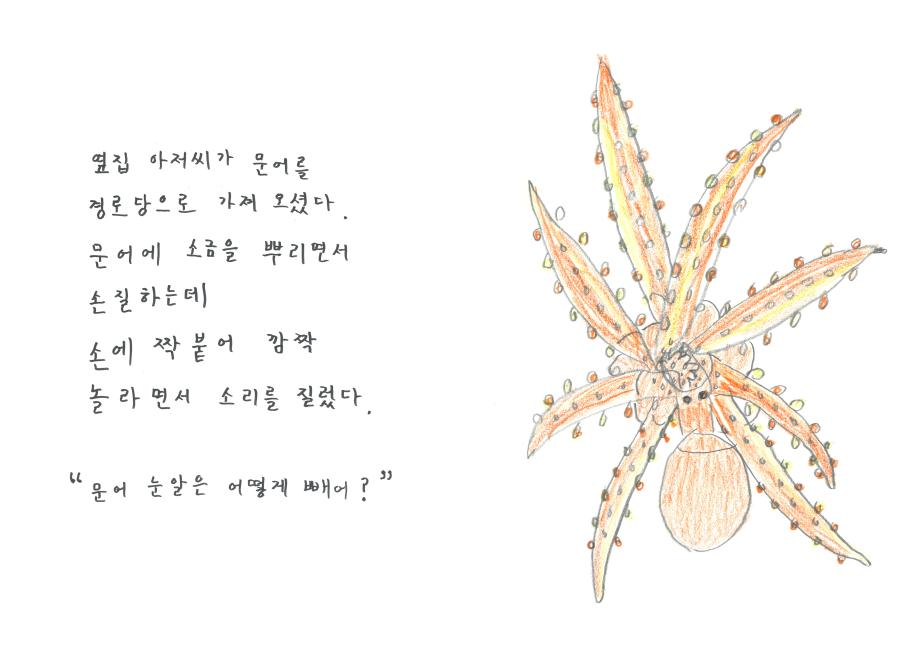 옆집 아저씨가 문어를
경로당으로 가져 오셨다.
문어에 소금을 뿌리면서
손질하는데
손에 짝 붙어 깜짝
놀라면서 소리를 질렀다.
“문어 눈알은 어떻게 빼어?”